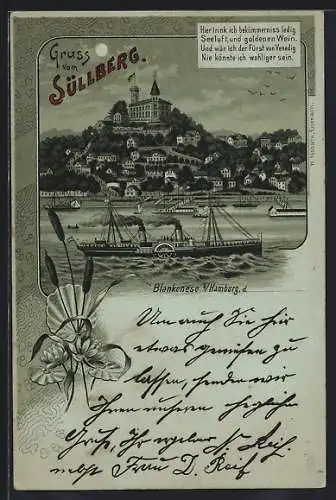 Gruss
vom
SÜLLBERG.
Hier trink ich bekümmerniss ledig
Seeluft, und goldenen Wein.
Und wär ich der Fürst von Venedig
Nie könnte ich wohliger sein.
Blankenese b/Hamburg, d
Um auch Sie hier
etwas genießen zu
lassen, senden wir
Ihnen unseren herzlichen
Gruß, Ihr
nebst Frau D. Reif